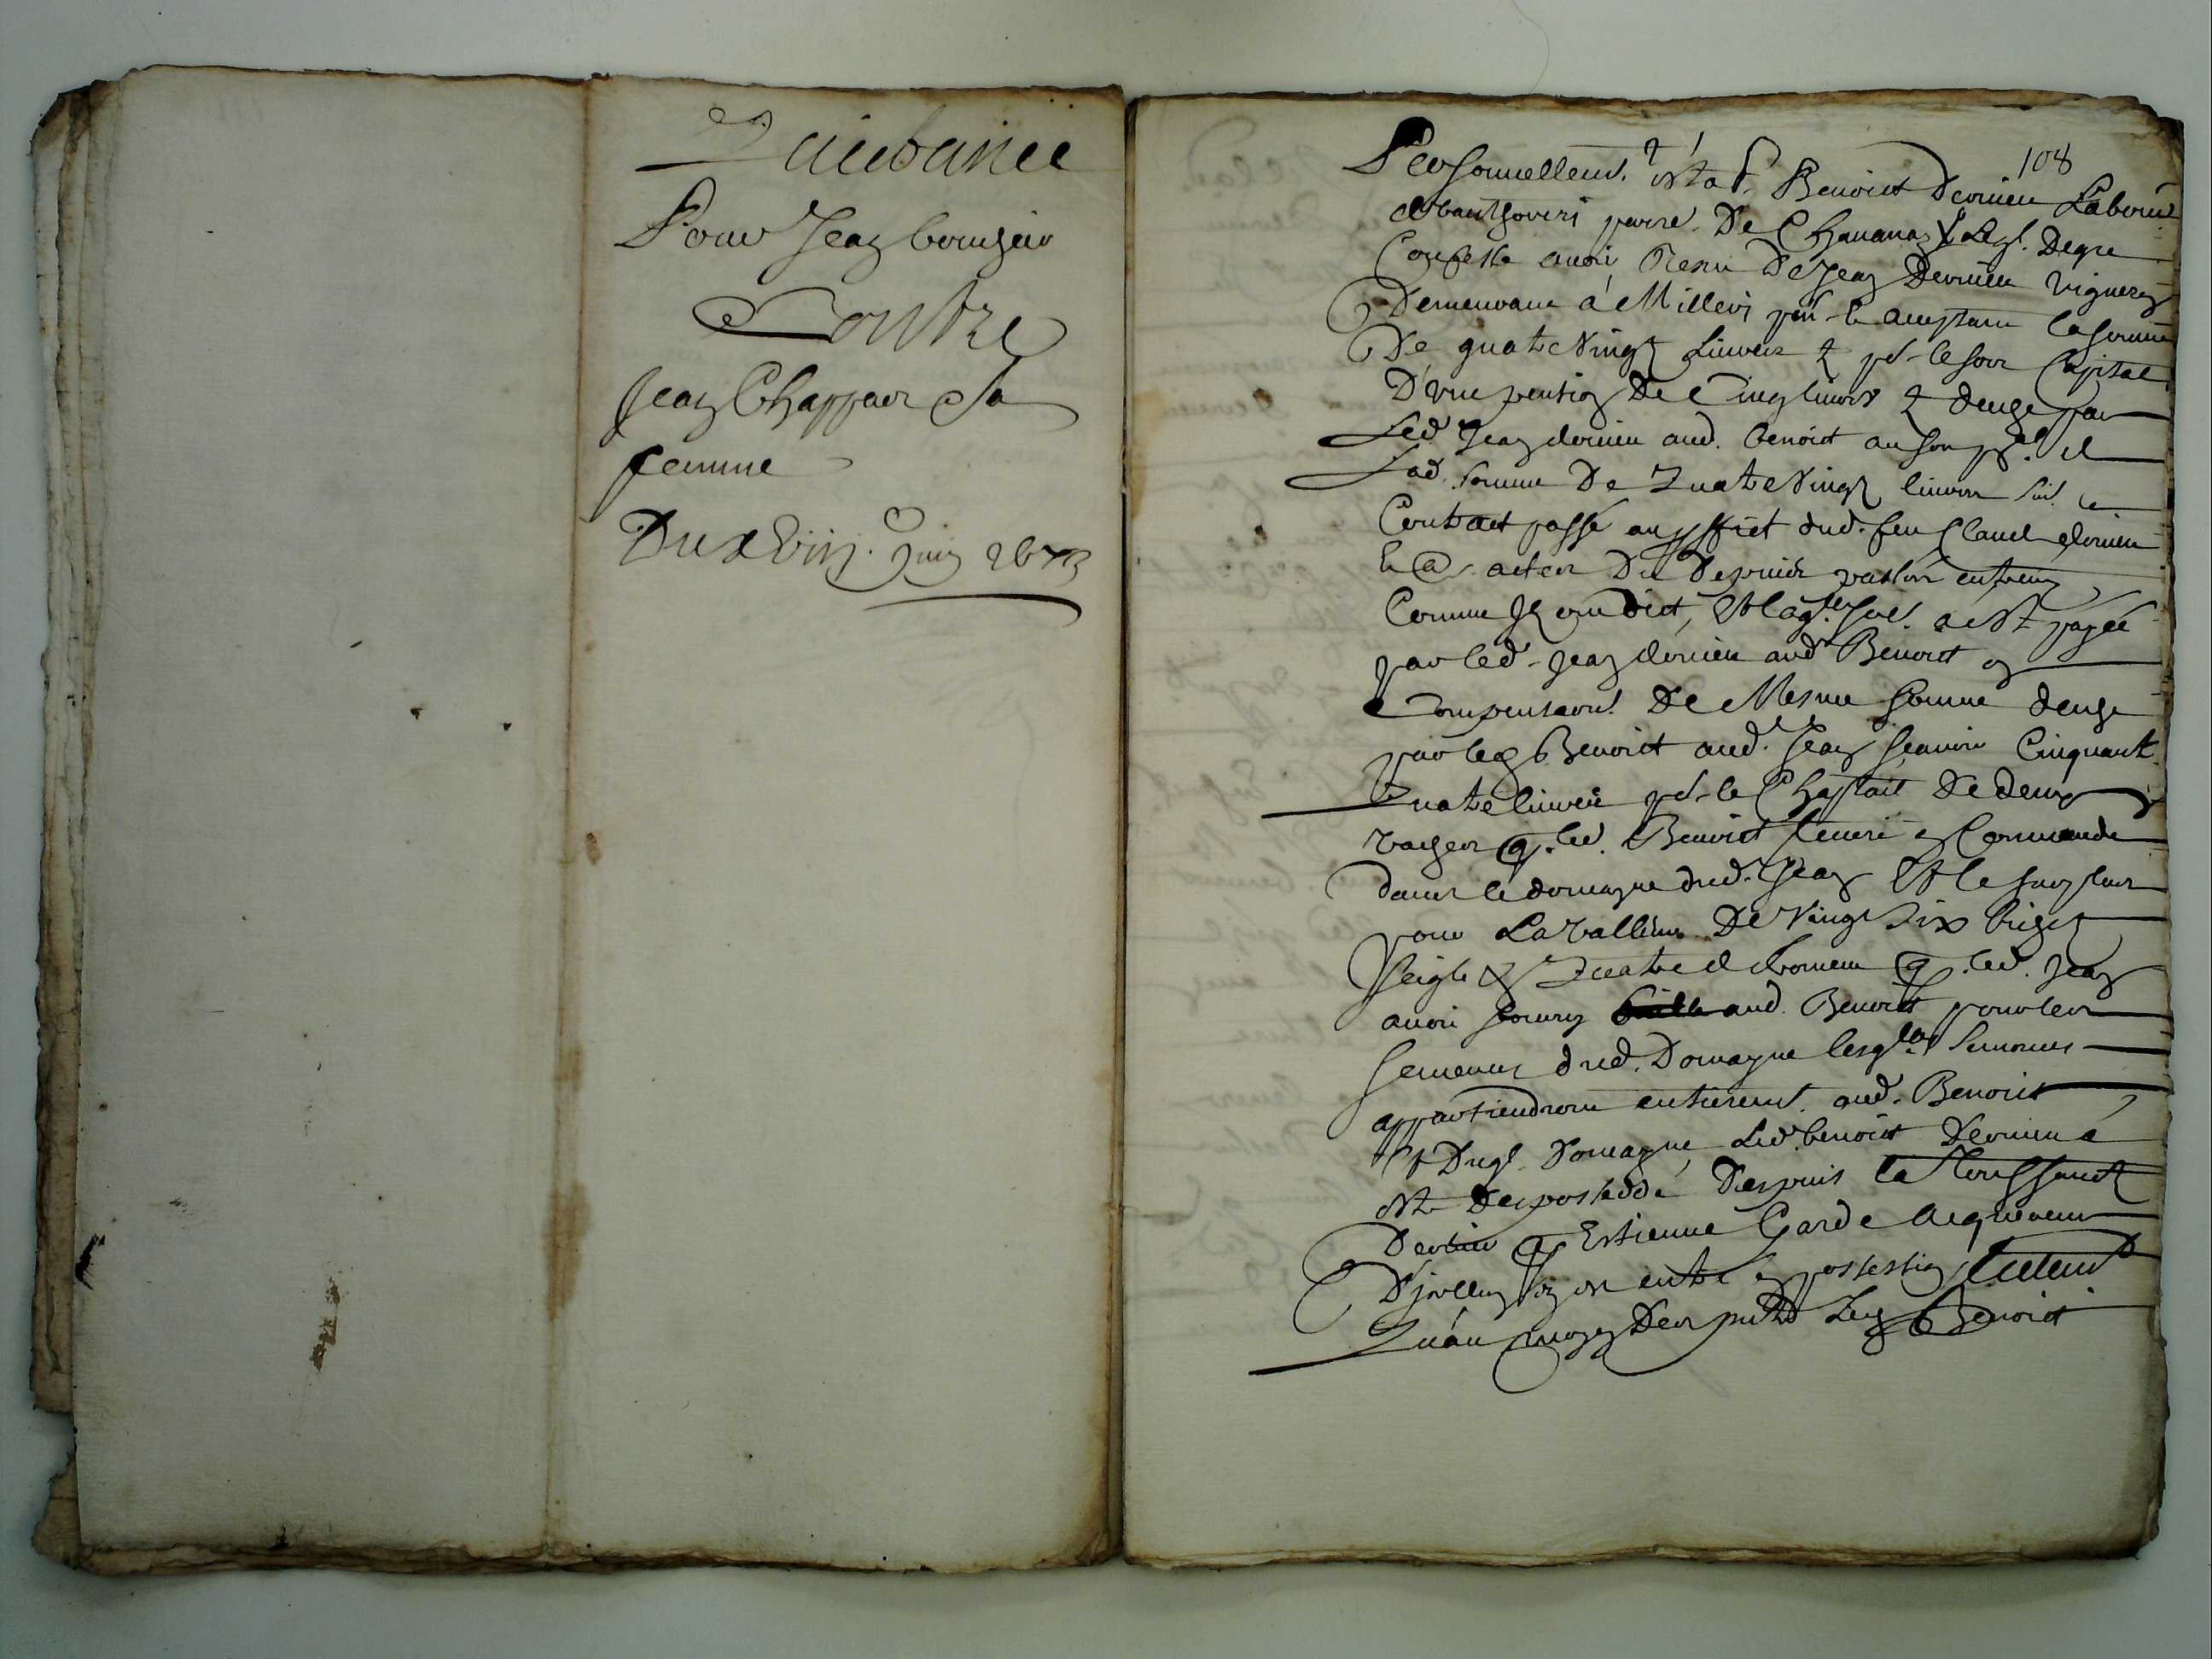 Quictance
Pour Jean bourgeir
Contre
Jean Chappaz Sa
femme
Du xviij. Juin 1673
108
Personnellemt. estab. Benoict Dervieu Labour
parre. De Chananay Leql. Degre
Confesse avoir Receu De Jean Dervieu vigneron
Demeurant á Millery pnt. & acceptant la somme
De quatrevingt Livres pr. le sort Capital
D'une pention De Cinq livres deuhe par
Led. Jean dervieu aud. benoict
Lad. somme De Quatrevingt livres
Contract passé au proffict dud. feu Claude dervieu
actes Du
Comme Ilz ont dict, Et laqlle. som. a esté payée
par led. Jean dervieu aud. Benoict en
Compensaon. De Mesme somme deuhe
par led. Benoict aud. Jean scavoir Cinquante
Quatre livres pr. le Chaptail De deux
vaches q. led. Benoict tenoit en Commande
dans le domayne dud. Jean Et le surplus
pour La valleur De Vingt Six bichetz
seigle & Quatre de froment q. led. Jean
avoit fourny aud. Benoict pour les
semences dud. Domayne lesqles. semences
appartiendront entierement. aud. Benoict
Et Duql. Domayne Led. benoict Dervieu a
esté Despossedé Despuis la Toussainctz
Dernier q. Estienne Garde Acquereur
D'jcelluy en est entré en possession
Qu'au moyen Des Benoict